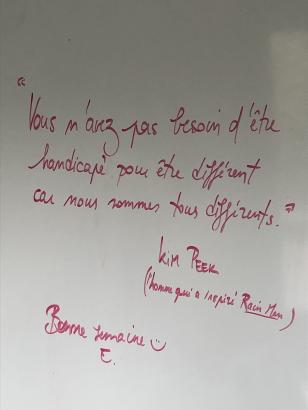 "Vous n'avez pas besoin d'être
handicapé pour être différent
car nous sommes tous différents."
Kim PEEK
(l'homme qui a inspiré Rain Man)
Bonne semaine
E.